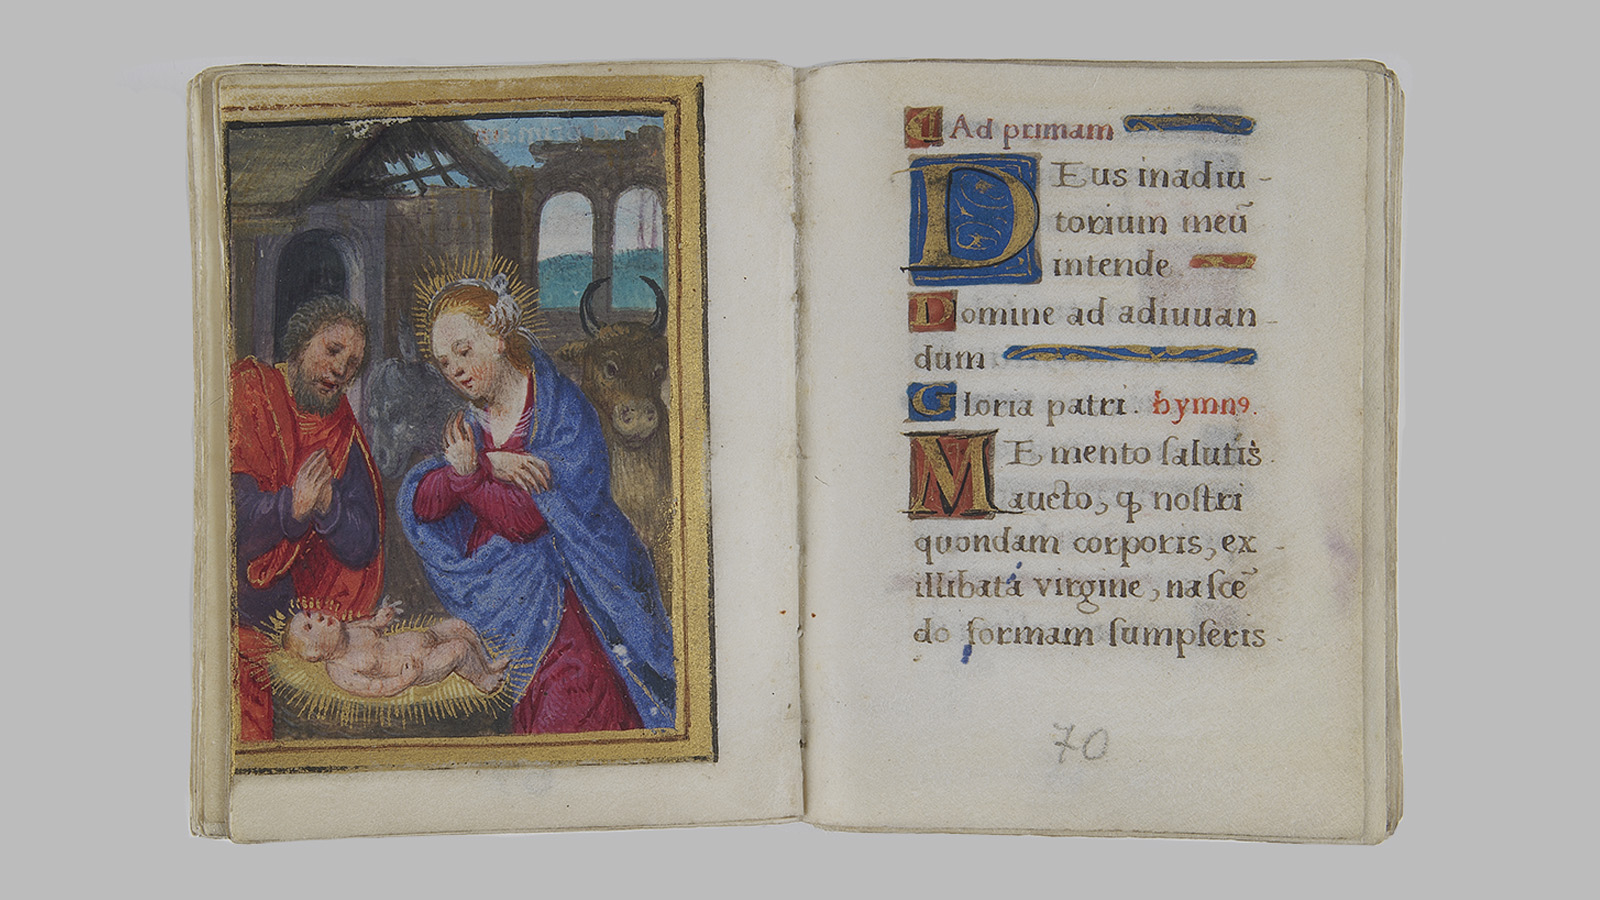 Ad primam
DEus in adiu-
torium meū
intende
Domine ad adiuuan-
dum
Gloria patri. hymnꝰ.
MEmento salutis
aucto, ꝙ nostri
quondam corporis, ex-
illibata virgine, nascē-
do formam sumpseris
70